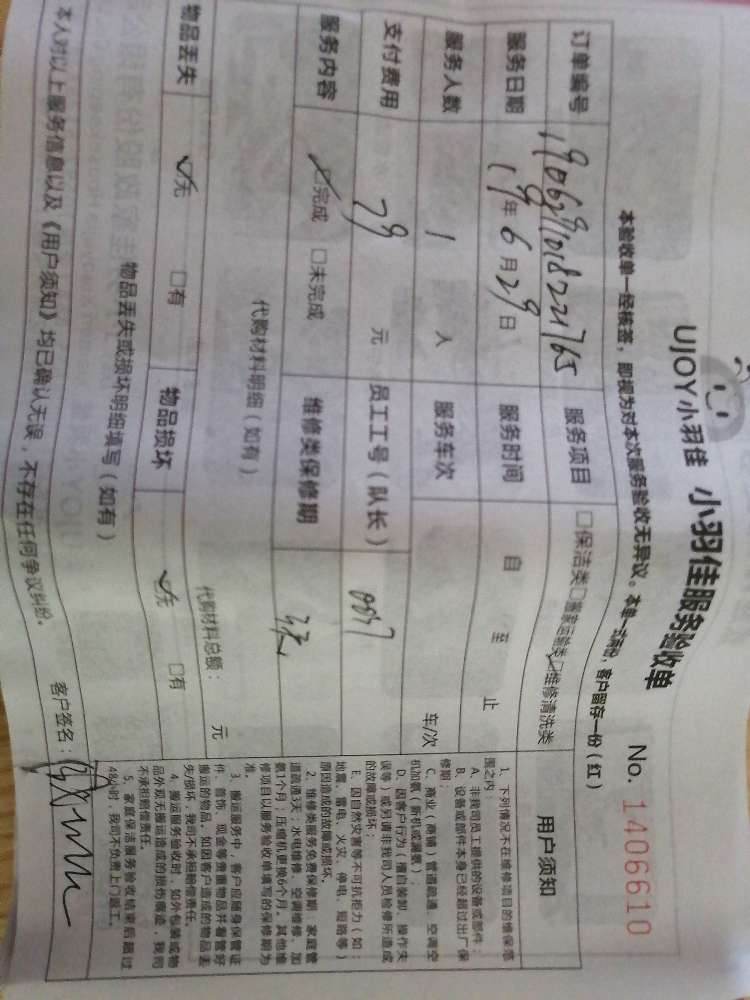 UJOY小羽佳 小羽佳服务验收单
No. 1406610
本验收单一经核签，即视为对本次服务验收无异议。本单一式两份，客户留存一份（红）
订单编号 1906291018221765 服务项目 □保洁类□搬家运输类☑维修清洗类
服务日期 19年6月29日 服务时间 自 至 止
服务人数 1 人 服务车次 车/次
支付费用 79 元 员工工号（队长） 0057
服务内容 ☑完成 □未完成 维修类保修期 3天
代购材料明细（如有）
代购材料总额： 元
物品丢失 ☑无 □有 物品损坏 ☑无 □有
物品丢失或损坏明细填写（如有）
本人对以上服务信息以及《用户须知》均已确认无误，不存在任何争议纠纷。
客户签名：
用户须知
1、下列情况不在维修项目的维保范
围之内
A、非我司员工提供的设备或部件；
B、设备或部件本身已经超过出厂保
修期；
C、商业（商铺）管道疏通、空调空
机加氨（新机或漏氨）；
D、因客户行为（擅自装卸、操作失
误等）或另请非我司人员检修所造成
的故障或损坏；
E、因自然灾害等不可抗拒力（如：
地震、雷电、火灾、停电、短路等）
原因造成的故障或损坏。
2、维修类服务免费保修期：家庭管
道疏通3天；水电维修、空调维修、加
氨1个月；压缩机更换6个月。其他维
修项目以服务验收单填写的保修期为
准。
3、搬运服务中，客户应随身保管证
件、首饰、现金等贵重物品并看管好
搬运的物品。如因客户造成的物品丢
失/损坏，我司不承担赔偿责任。
4、搬运服务验收时，如外包装或物
品外观无搬运造成的损伤痕迹，我司
不承担赔偿责任。
5、家庭保洁服务验收结束后超过
48小时，我司不负责上门返工。